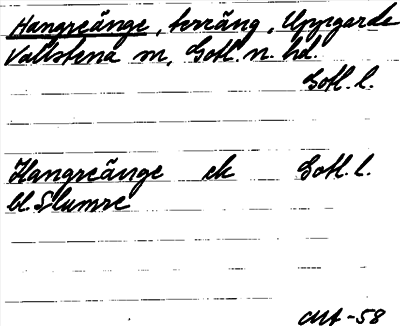 Hangreänge, terräng, Uppgarde
Vallstena sn, Gotl. n. hd.
Gotl. l.
Hangreänge ek Gotl. l.
bl. Slumre
-58